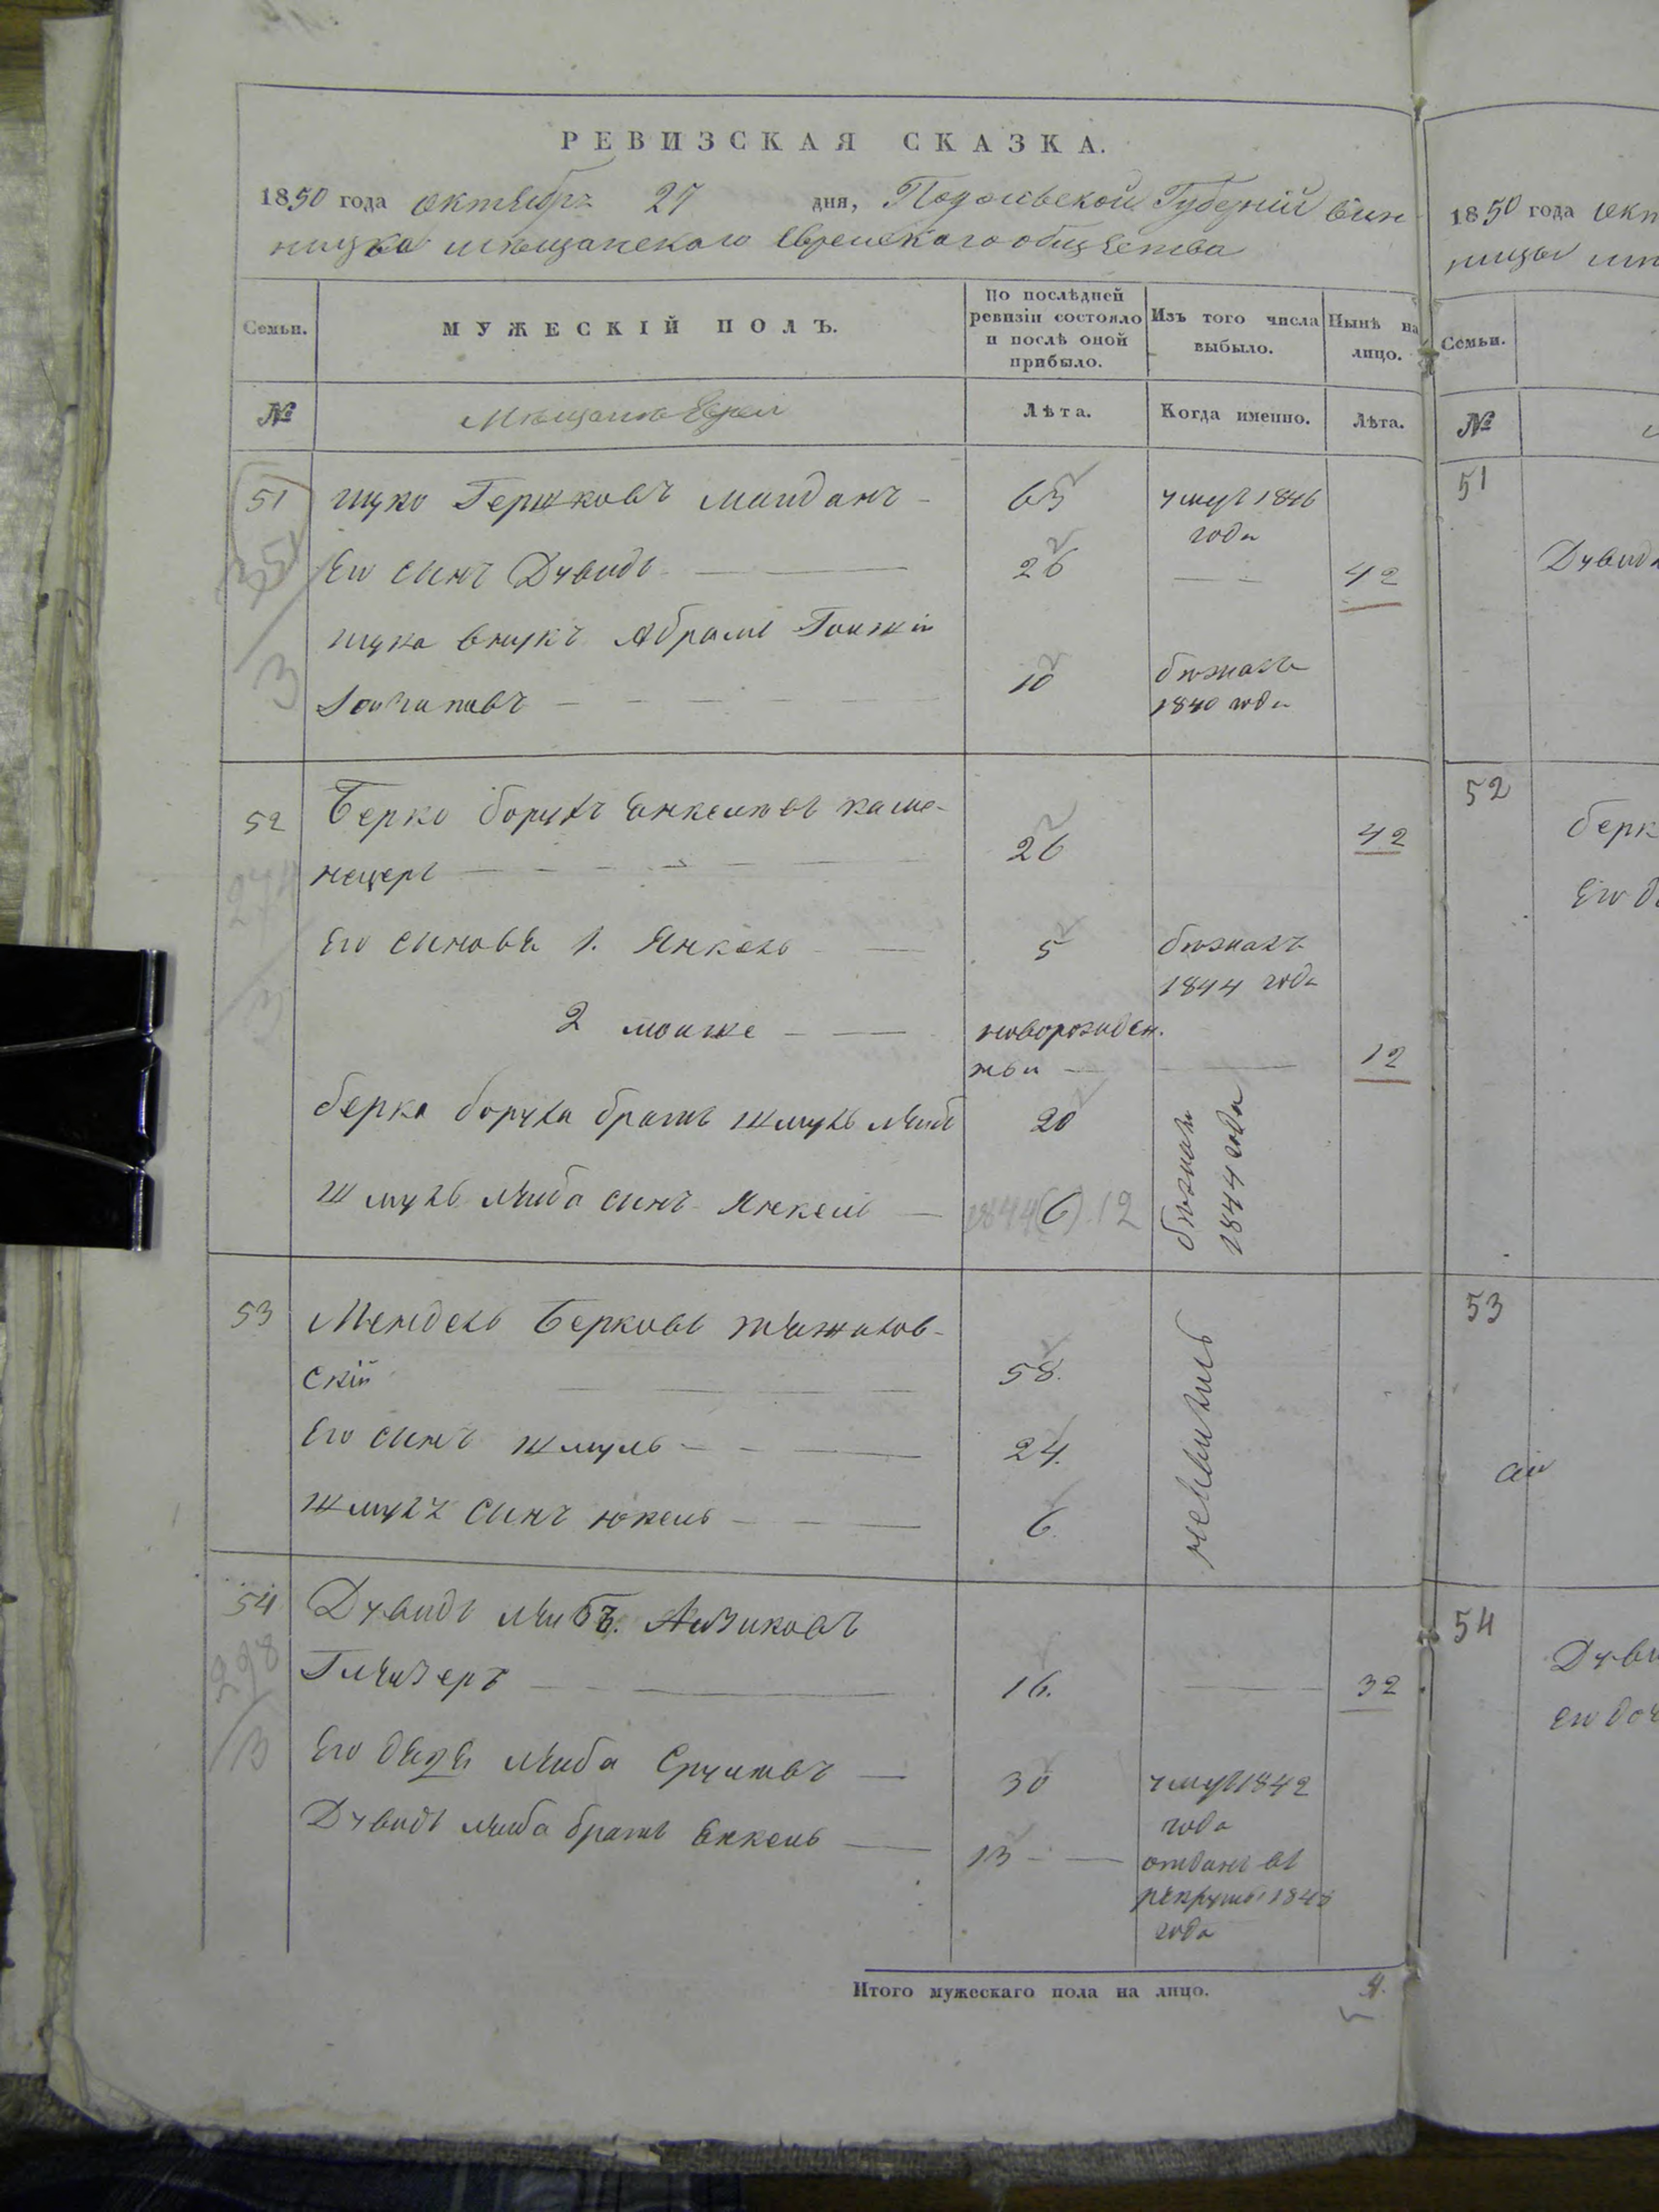 РЕВИЗСКАЯ СКАЗКА.
1850 года октября 27 дня, Подольской Губерній Вин
ницко мѣщанскаго Еврейскаго общества
Семьи.
МУЖЕСКІЙ ПОЛЪ.
По послѣдней ревизіи состояло и послѣ оной прибыло.
Изъ того числа выбыло.
Нынѣ на лицо.
№
Мѣщане Евреи
Лѣта.
Когда именно.
Лѣта.
51 Ицко Гершковъ Майданъ 63 умеръ 1846
года
Его синъ Дувидъ 26 42
Ицка внукъ Абрамъ
10 бѣжалъ
1840 года
3
52 Берко Борухъ Янкелювъ Каме-
нецеръ 26 42
Его синовя 1. Янкель 5 бѣжалъ
1844 года
2 Мошке новорожден.
ный 12
Берка Боруха братъ Шмуль Лейб 20 бѣжали
1844 года
Шмуль Лейба синъ Янкель 1844 (6) 12
53 Мендель Берковъ
скій 58.
Его синъ Шмуль 24.
Шмуля синъ Юкель 6.
54 Дувидъ Лейбъ. Айзиковъ
Глейзеръ 16. 32
298
3
Его дядя Лейба Срулювъ 30 умеръ 1842
года
Дувидъ Лейба братъ Янкель 13 отданъ въ
рекруты 184
года
Итого мужескаго пола на лицо. 4.
1850 года окт
ницы мѣ
Семьи.
№
51
Дувида
52
Берк
Его д
53
54
Дуви
Его доч